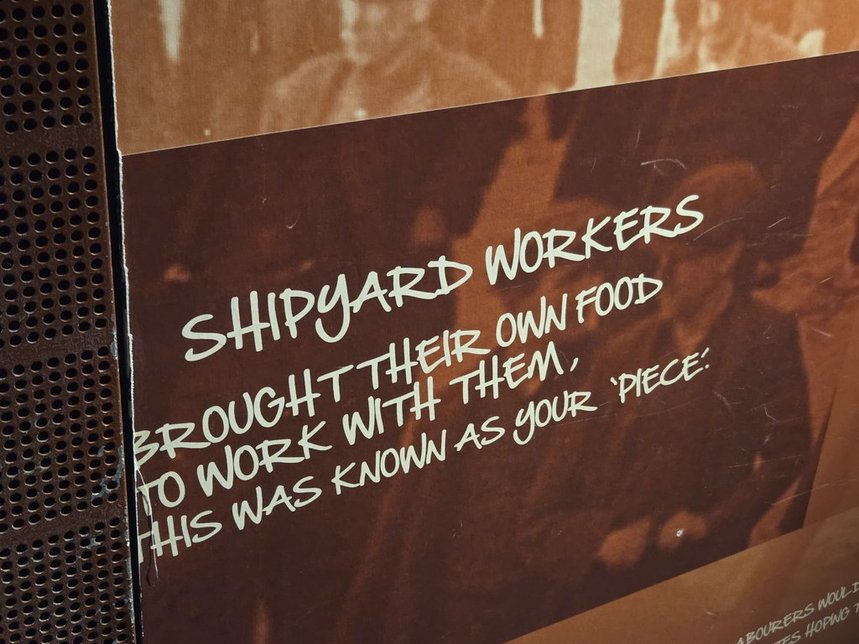 SHIPYARD WORKERS
BROUGHT THEIR OWN FOOD
TO WORK WITH THEM,
THIS WAS KNOWN AS YOUR 'PIECE'.
HOPING